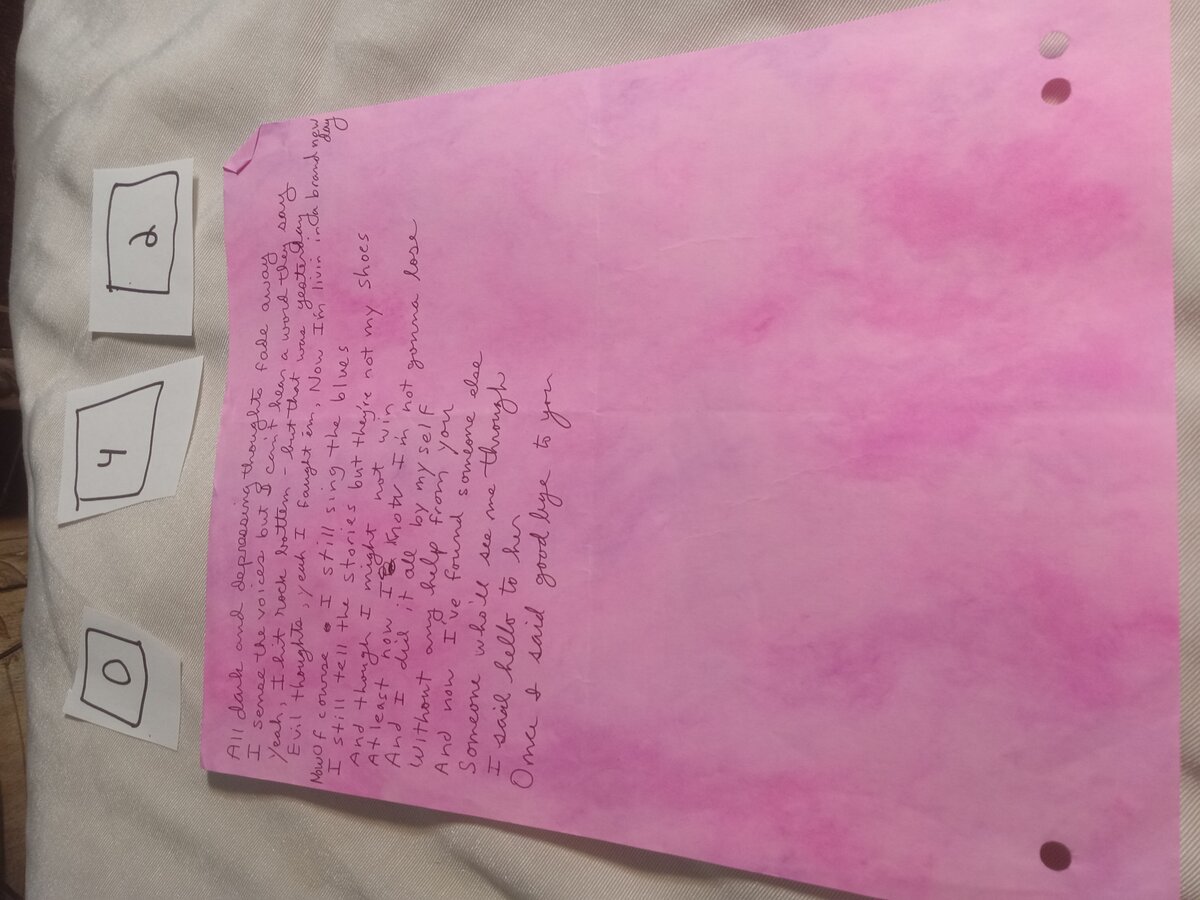 0 4 2
All dark and depressing thoughts fade away
I sense the voices but I can't hear a word they say
Yeah, I hit rock bottem - but that was yesterday
Evil thoughts, yeah I faught em, Now I'm livin in a brand new day
Now Of course I still sing the blues
I still tell the stories but they're not my shoes
And though I might not win
Atleast now I know I'm not gonna lose
And I did it all by myself
Without any help from you
And now I've found someone else
Someone who'll see me through
I said hello to her
Once I said goodbye to you